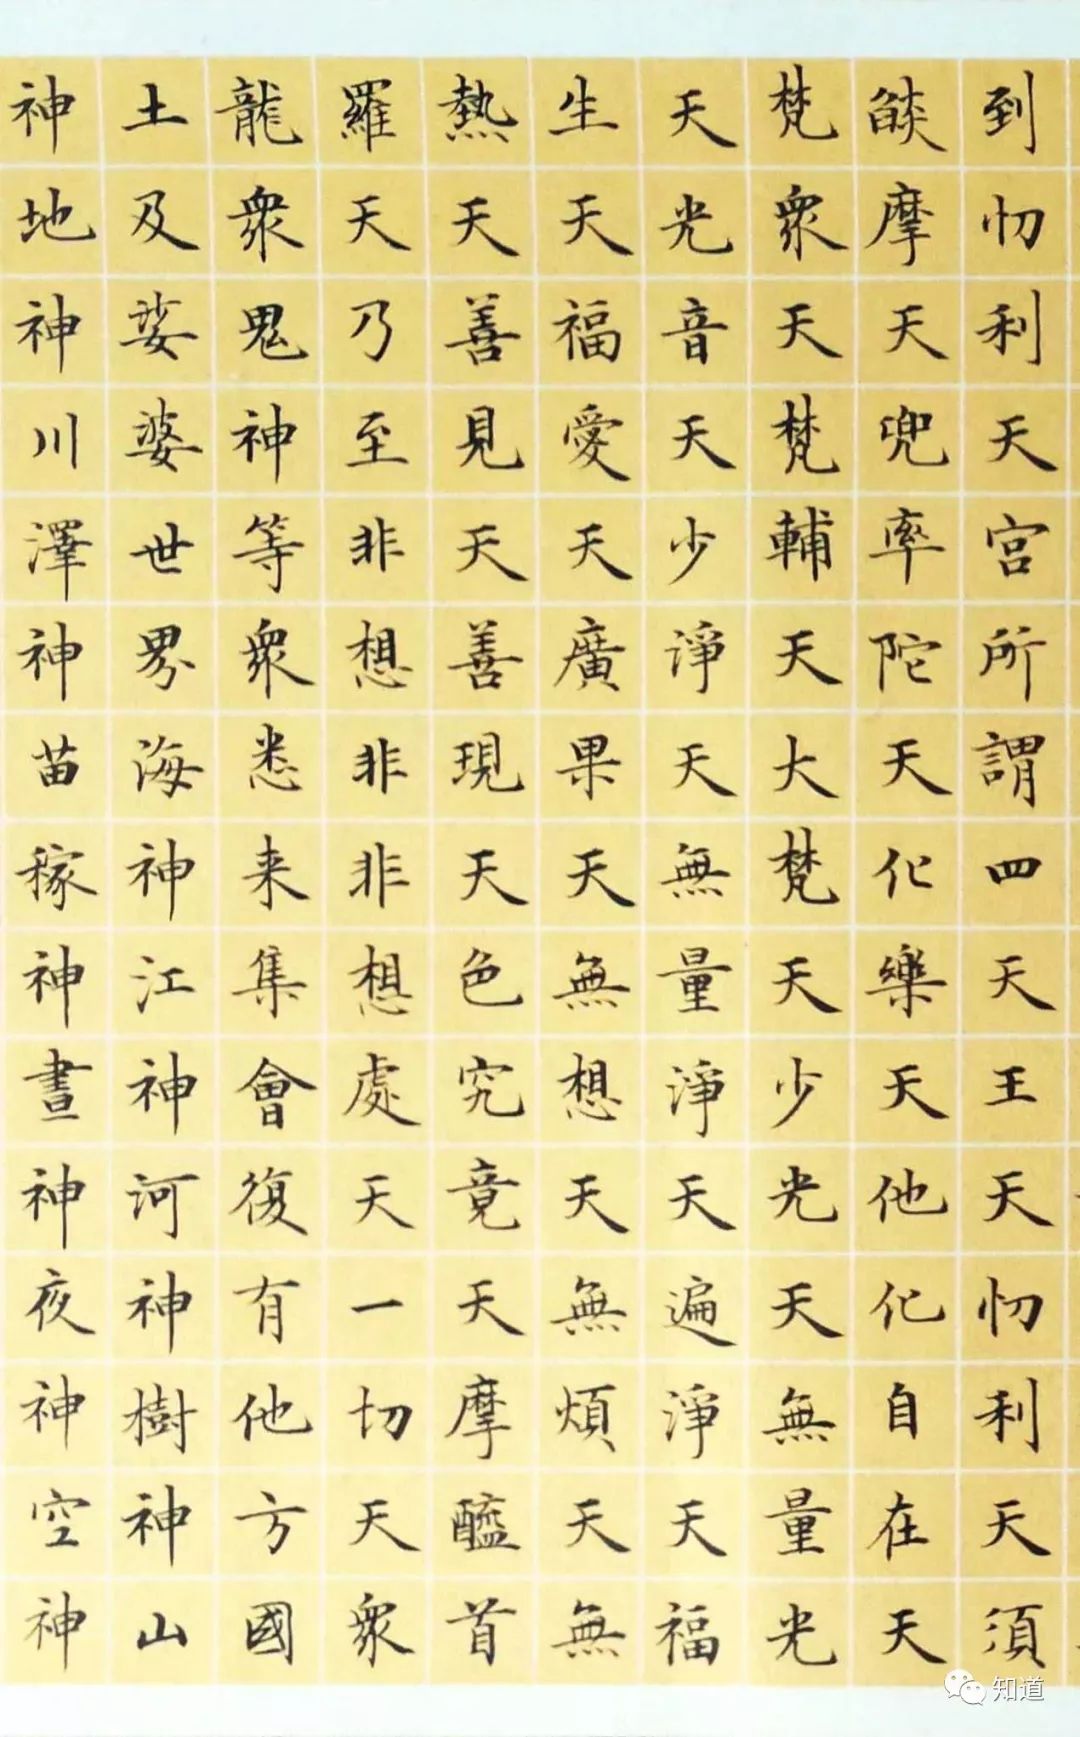 到忉利天宮所謂四天王天忉利天須
燄摩天兜率陀天化樂天他化自在天
梵衆天梵輔天大梵天少光天無量光
天光音天少淨天無量淨天遍淨天福
生天福愛天廣果天無想天無煩天無
熱天善見天善現天色究竟天摩醯首
羅天乃至非想非非想處天一切天衆
龍衆鬼神等衆悉来集會復有他方國
土及娑婆世界海神江神河神樹神山
神地神川澤神苗稼神晝神夜神空神
知道